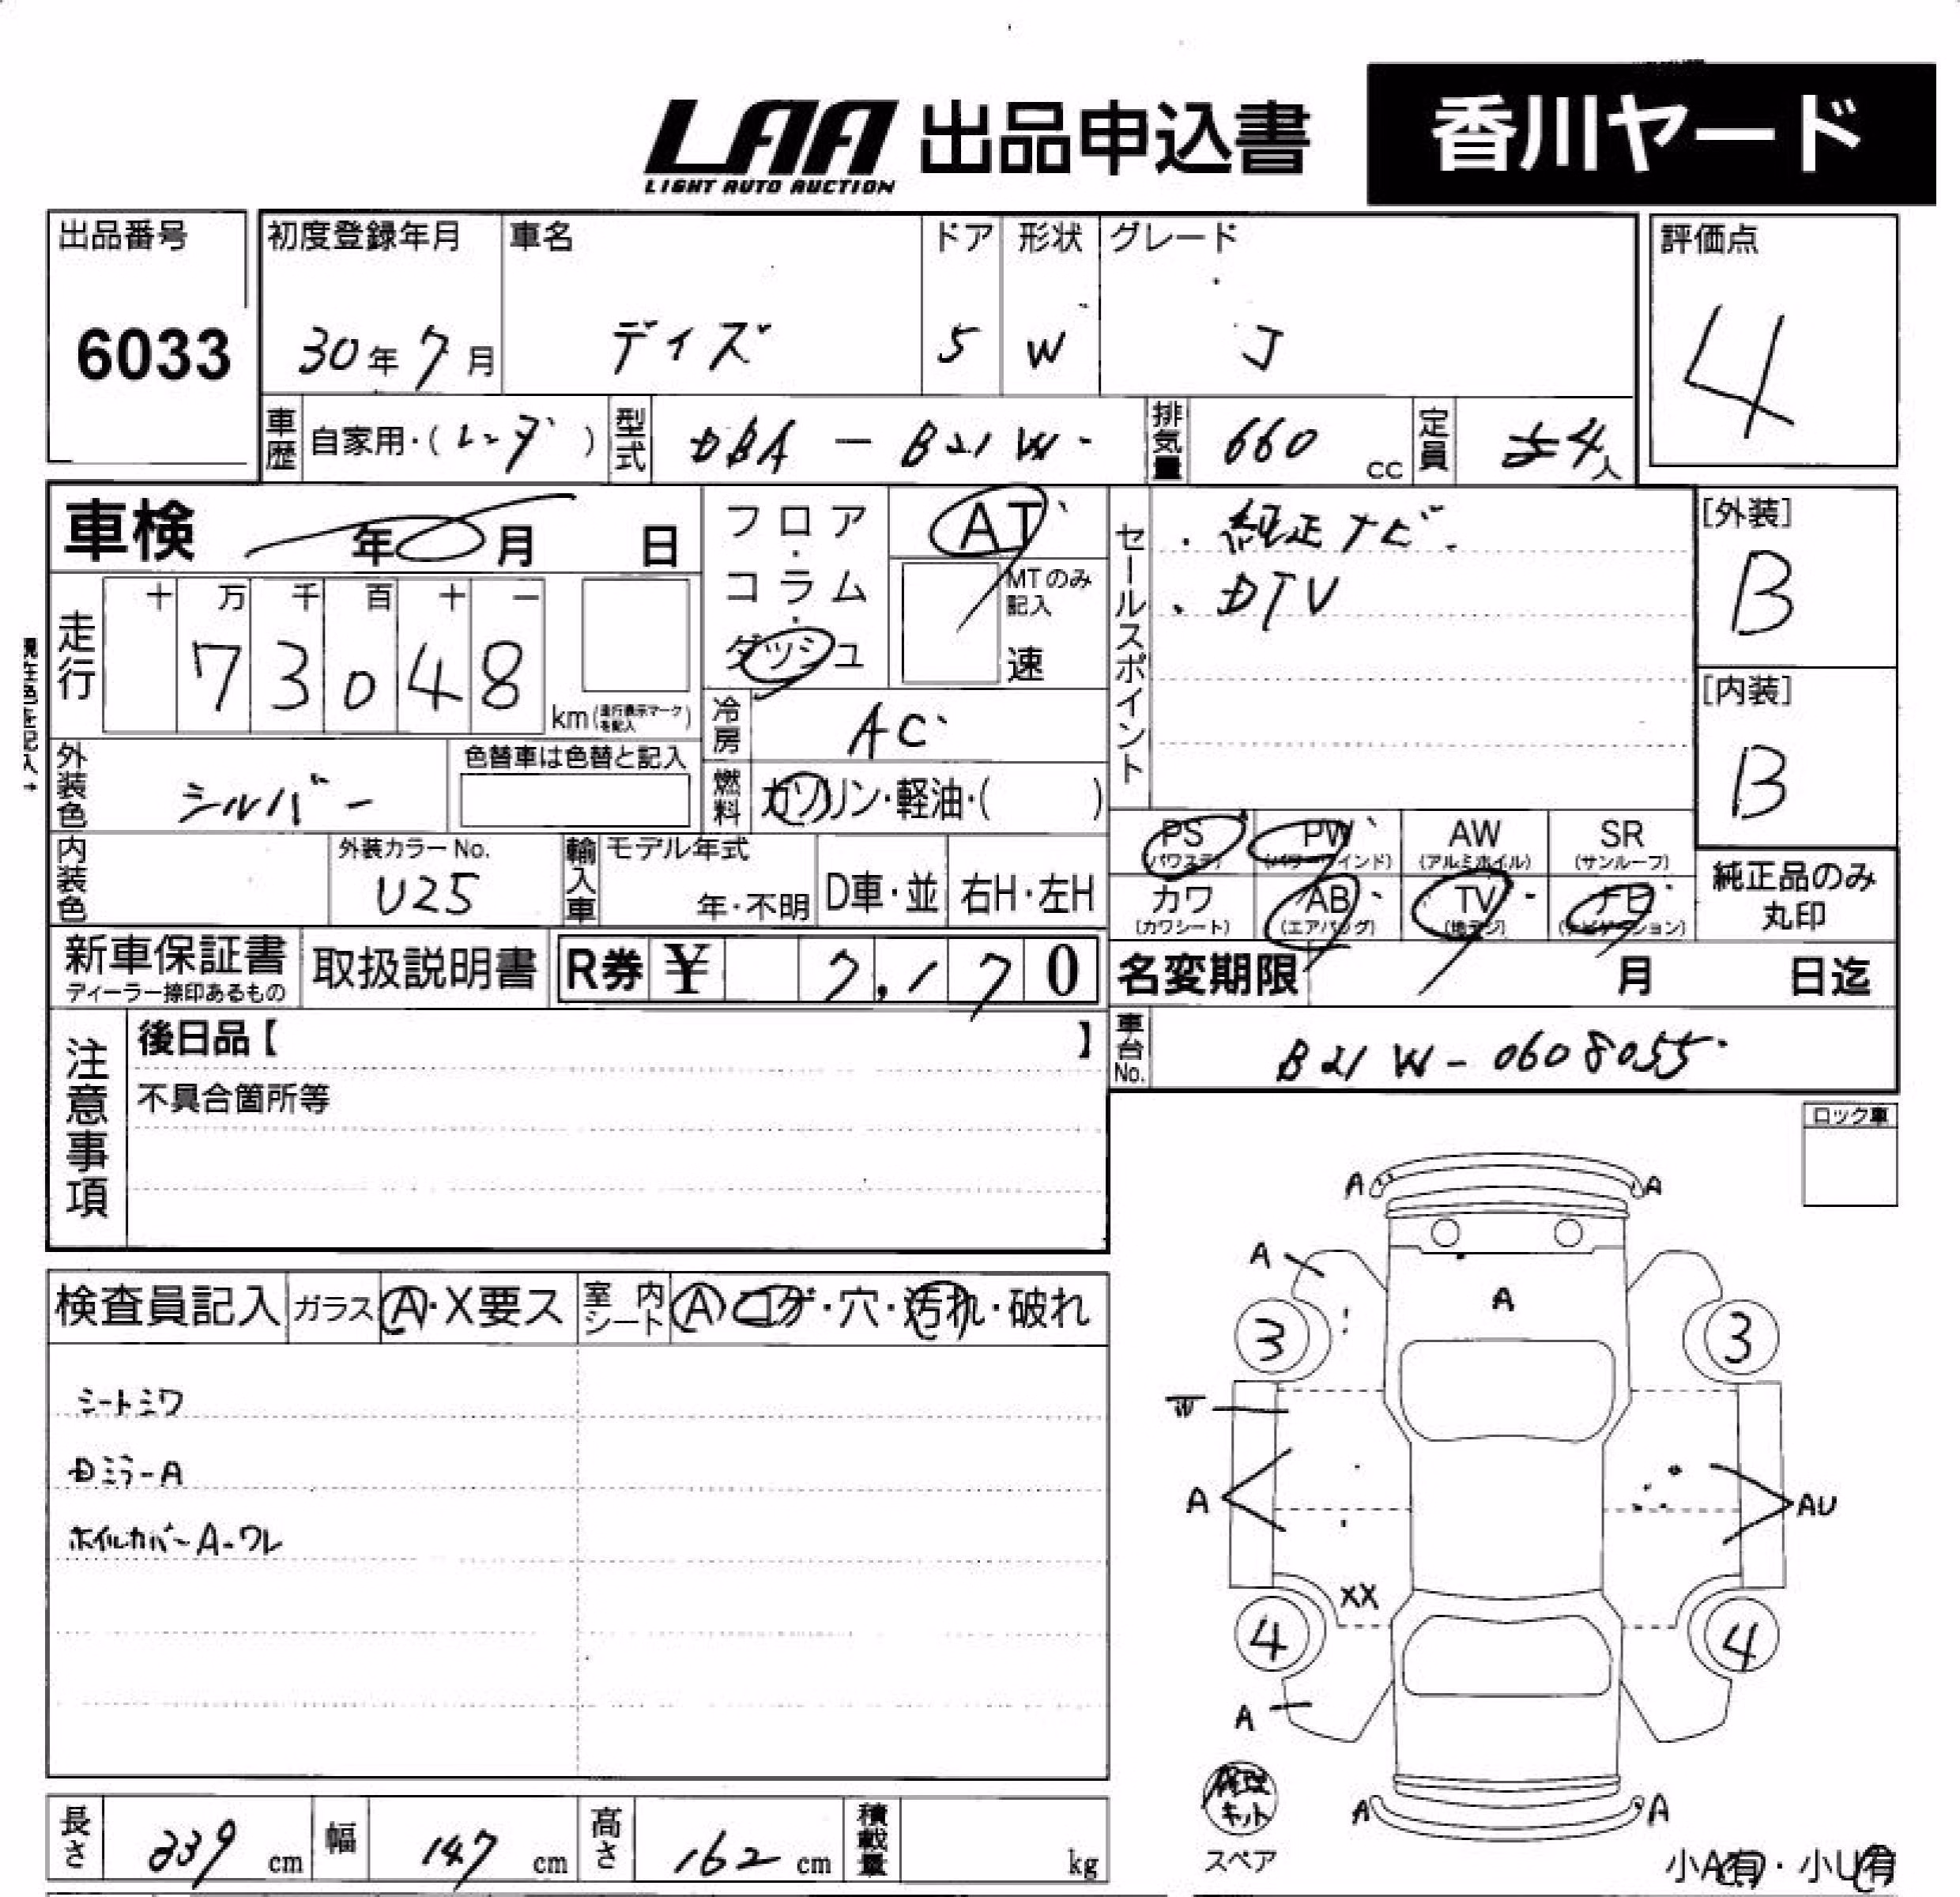 LAA 出品申込書 香川ヤード
LIGHT AUTO AUCTION
出品番号 初度登録年月 車名 ドア 形状 グレード 評価点
6033 30年7月 デイズ 5 W J 4
車歴 自家用・(レンタ) 型式 DBA - B21W 排気量 660 cc 定員 5 4人
車検 年 月 日
フロア・コラム・ダッシュ
AT
MTのみ記入
速
セールスポイント
・純正ナビ
・DTV
[外装]
B
[内装]
B
現在色を記入→
走行 十 万 千 百 十 一
73048 km(走行表示マークを記入)
冷房 AC
外装色 シルバー 色替車は色替と記入
燃料 ガソリン・軽油・( )
PS (パワステ) PW (パワーウインド) AW (アルミホイル) SR (サンルーフ)
カワ (カワシート) AB (エアバッグ) TV (地デジ) ナビ (ナビゲーション)
純正品のみ丸印
内装色 外装カラーNo. U25 輸入車 モデル年式 年・不明 D車・並 右H・左H
新車保証書 ディーラー捺印あるもの 取扱説明書 R券 ¥ 7,170
名変期限 月 日迄
車台No. B21W-0608055
注意事項
後日品【 】
不具合箇所等
ロック車
検査員記入 ガラス A・X要ス 室内シート A コゲ・穴・汚れ・破れ
シートシワ
Dミラ-A
ホイルカバーA-ワレ
A A
A A
3 3
W
A AU
XX
4 4
A
A A
キット
スペア
小A有・小U有
長さ 339 cm 幅 147 cm 高さ 162 cm 積載量 kg